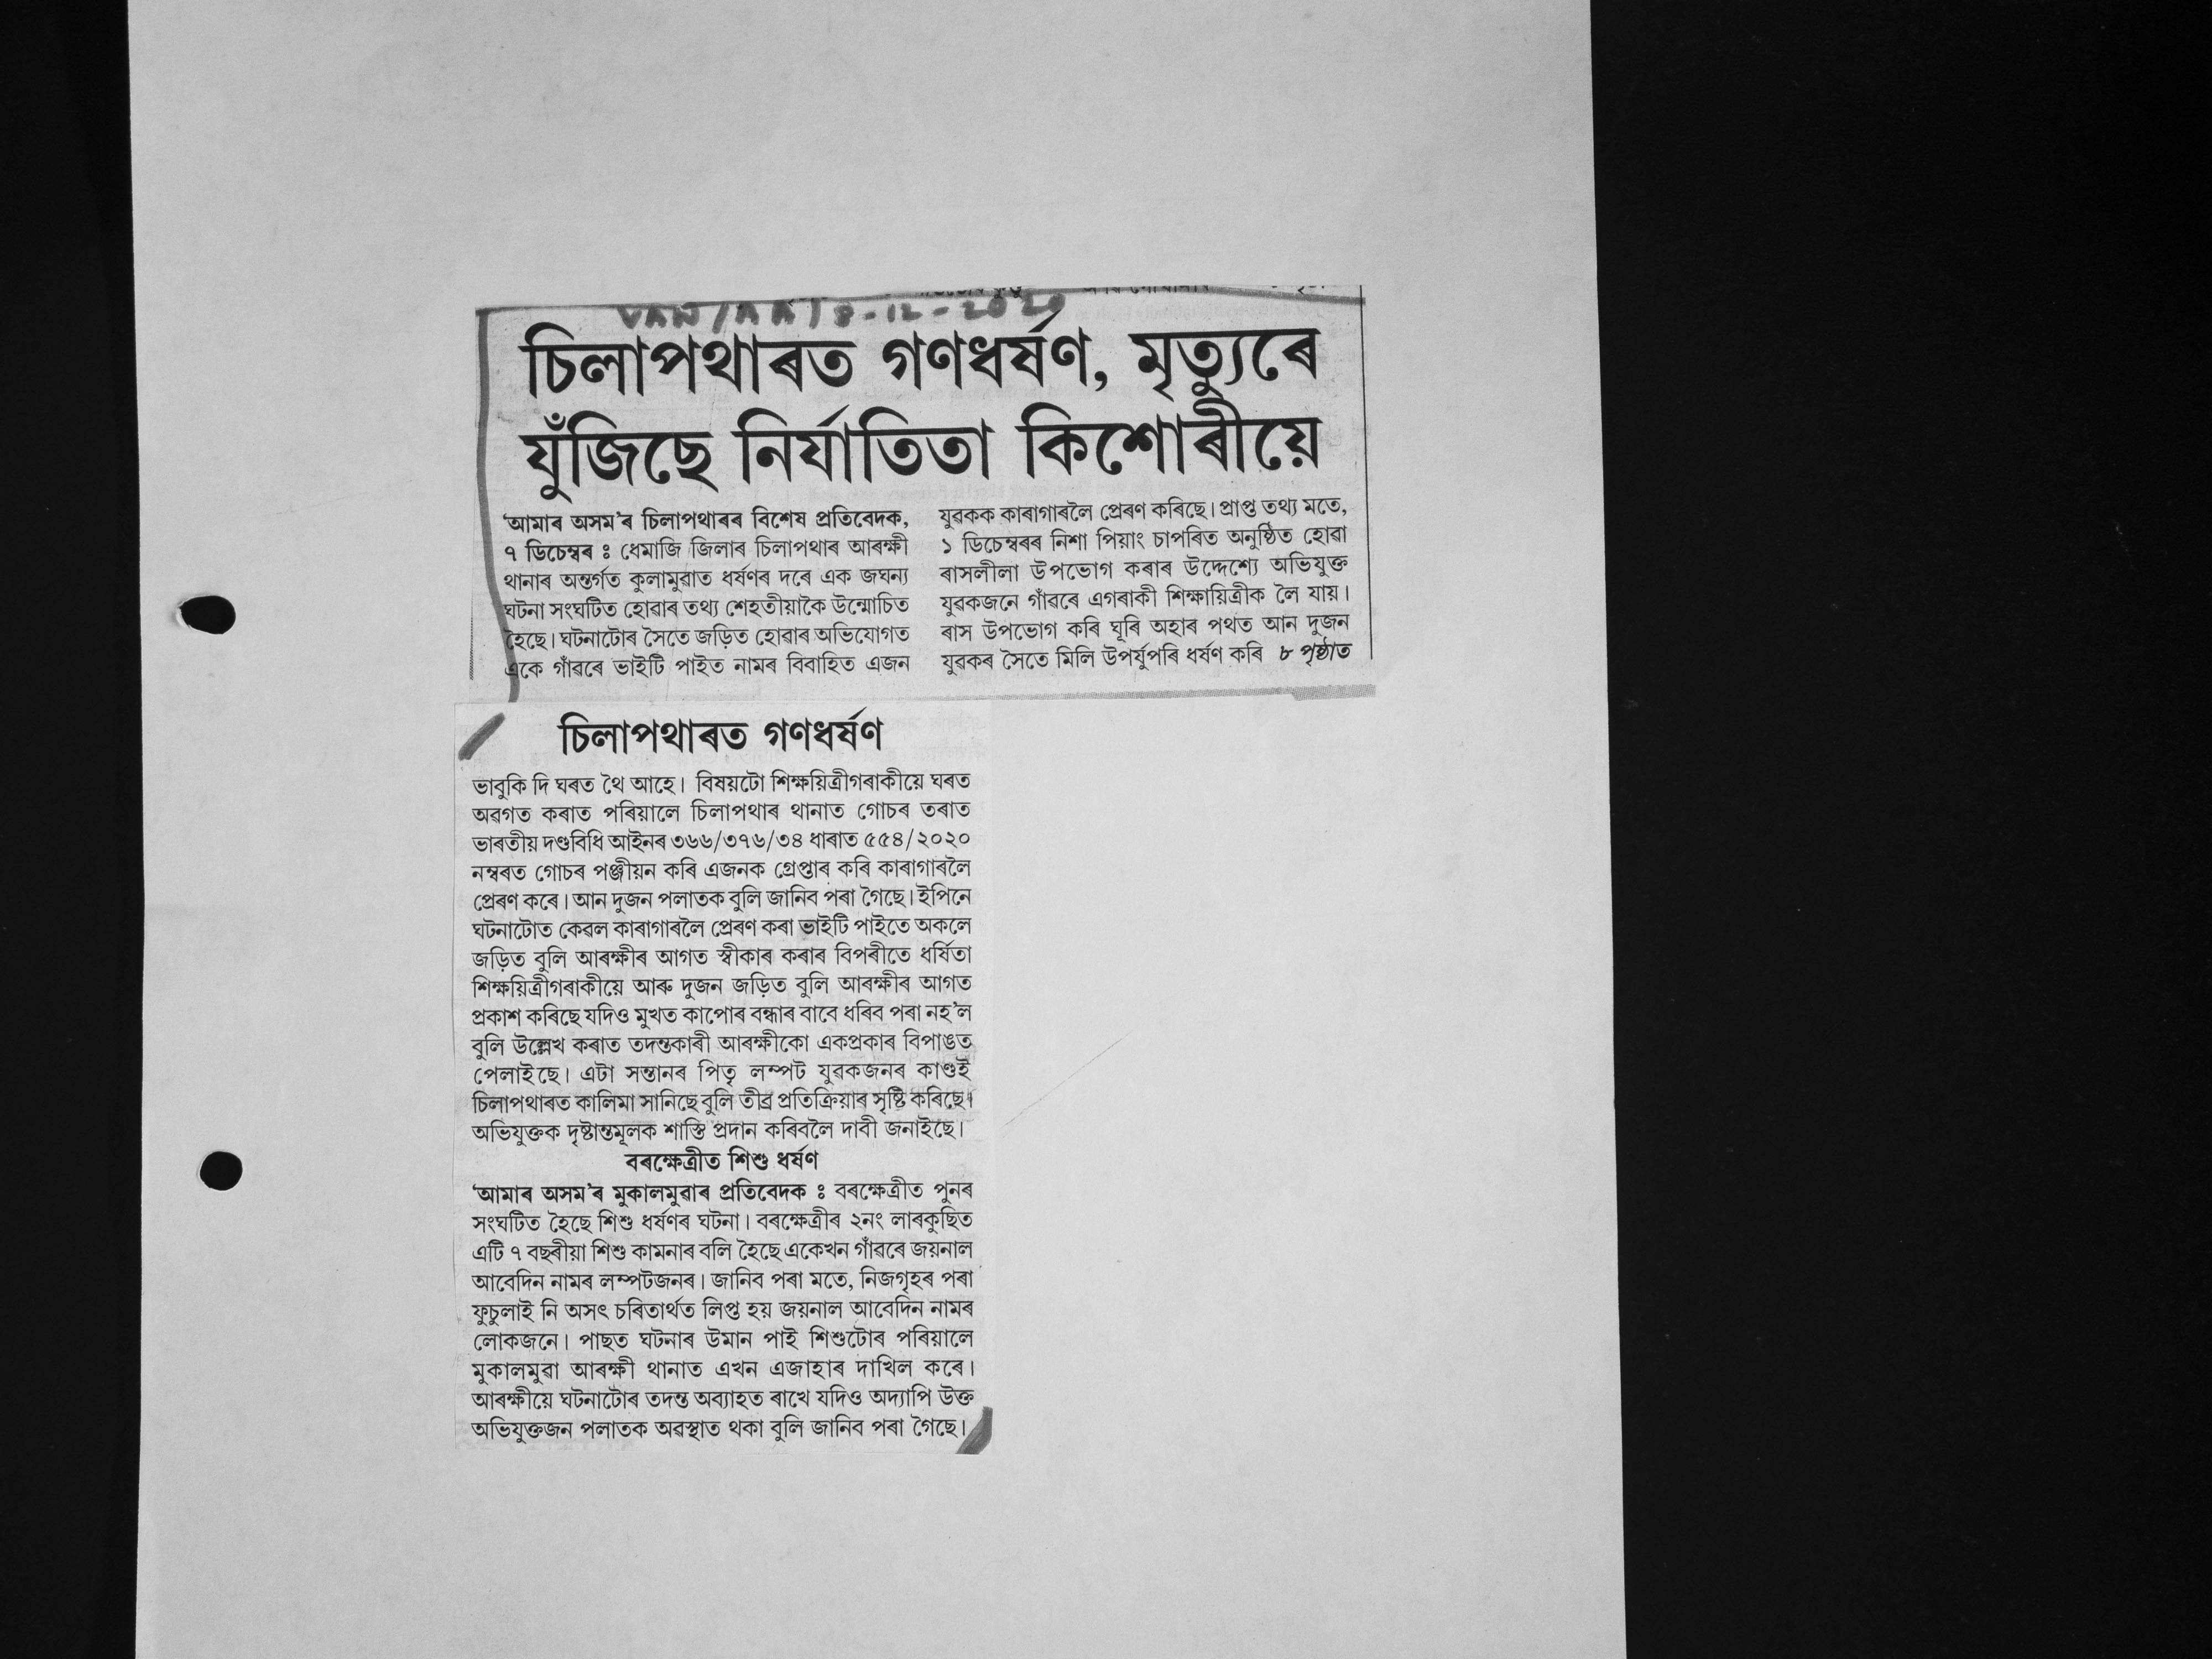 8-12-2020
চিলাপথাৰত গণধৰ্ষণ, মৃত্যুৰে
যুঁজিছে নিৰ্যাতিতা কিশোৰীয়ে
'আমাৰ অসম'ৰ চিলাপথাৰৰ বিশেষ প্ৰতিবেদক,
৭ ডিচেম্বৰ ঃ ধেমাজি জিলাৰ চিলাপথাৰ আৰক্ষী
থানাৰ অন্তৰ্গত কুলামুৱাত ধৰ্ষণৰ দৰে এক জঘন্য
ঘটনা সংঘটিত হোৱাৰ তথ্য শেহতীয়াকৈ উন্মোচিত
হৈছে। ঘটনাটোৰ সৈতে জড়িত হোৱাৰ অভিযোগত
একে গাঁৱৰে ভাইটি পাইত নামৰ বিবাহিত এজন
যুৱকক কাৰাগাৰলৈ প্ৰেৰণ কৰিছে। প্ৰাপ্ত তথ্য মতে,
১ ডিচেম্বৰৰ নিশা পিয়াং চাপৰিত অনুষ্ঠিত হোৱা
ৰাসলীলা উপভোগ কৰাৰ উদ্দেশ্যে অভিযুক্ত
যুৱকজনে গাঁৱৰে এগৰাকী শিক্ষায়িত্ৰীক লৈ যায়।
ৰাস উপভোগ কৰি ঘূৰি অহাৰ পথত আন দুজন
যুৱকৰ সৈতে মিলি উপৰ্যুপৰি ধৰ্ষণ কৰি ৮ পৃষ্ঠাত
চিলাপথাৰত গণধৰ্ষণ
ভাবুকি দি ঘৰত থৈ আহে। বিষয়টো শিক্ষয়িত্ৰীগৰাকীয়ে ঘৰত
অৱগত কৰাত পৰিয়ালে চিলাপথাৰ থানাত গোচৰ তৰাত
ভাৰতীয় দণ্ডবিধি আইনৰ ৩৬৬/৩৭৬/৩৪ ধাৰাত ৫৫৪/২০২০
নম্বৰত গোচৰ পঞ্জীয়ন কৰি এজনক গ্ৰেপ্তাৰ কৰি কাৰাগাৰলৈ
প্ৰেৰণ কৰে। আন দুজন পলাতক বুলি জানিব পৰা গৈছে। ইপিনে
ঘটনাটোত কেৱল কাৰাগাৰলৈ প্ৰেৰণ কৰা ভাইটি পাইতে অকলে
জড়িত বুলি আৰক্ষীৰ আগত স্বীকাৰ কৰাৰ বিপৰীতে ধৰ্ষিতা
শিক্ষয়িত্ৰীগৰাকীয়ে আৰু দুজন জড়িত বুলি আৰক্ষীৰ আগত
প্ৰকাশ কৰিছে যদিও মুখত কাপোৰ বন্ধাৰ বাবে ধৰিব পৰা নহ'ল
বুলি উল্লেখ কৰাত তদন্তকাৰী আৰক্ষীকো একপ্ৰকাৰ বিপাঙত
পেলাইছে। এটা সন্তানৰ পিতৃ লম্পট যুৱকজনৰ কাণ্ডই
চিলাপথাৰত কালিমা সানিছে বুলি তীব্ৰ প্ৰতিক্ৰিয়াৰ সৃষ্টি কৰিছে।
অভিযুক্তক দৃষ্টান্তমূলক শাস্তি প্ৰদান কৰিবলৈ দাবী জনাইছে।
বৰক্ষেত্ৰীত শিশু ধৰ্ষণ
'আমাৰ অসম'ৰ মুকালমুৱাৰ প্ৰতিবেদক ঃ বৰক্ষেত্ৰীত পুনৰ
সংঘটিত হৈছে শিশু ধৰ্ষণৰ ঘটনা। বৰক্ষেত্ৰীৰ ২নং লাৰকুছিত
এটি ৭ বছৰীয়া শিশু কামনাৰ বলি হৈছে একেখন গাঁৱৰে জয়নাল
আবেদিন নামৰ লম্পটজনৰ। জানিব পৰা মতে, নিজগৃহৰ পৰা
ফুচুলাই নি অসৎ চৰিতাৰ্থত লিপ্ত হয় জয়নাল আবেদিন নামৰ
লোকজনে। পাছত ঘটনাৰ উমান পাই শিশুটোৰ পৰিয়ালে
মুকালমুৱা আৰক্ষী থানাত এখন এজাহাৰ দাখিল কৰে।
আৰক্ষীয়ে ঘটনাটোৰ তদন্ত অব্যাহত ৰাখে যদিও অদ্যাপি উক্ত
অভিযুক্তজন পলাতক অৱস্থাত থকা বুলি জানিব পৰা গৈছে।